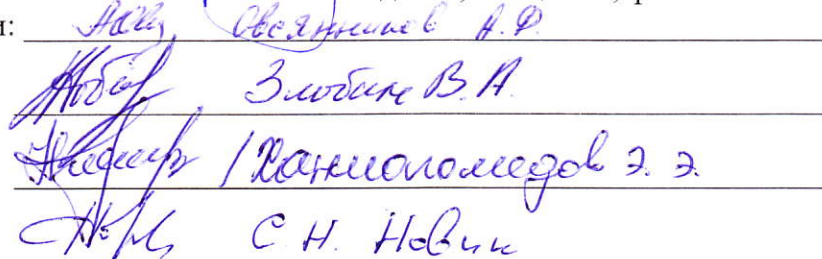 и: Овсянников А.Ф.
Злобин В.А.
/ Ханмагомедов Э. Э.
С. Н. Новик